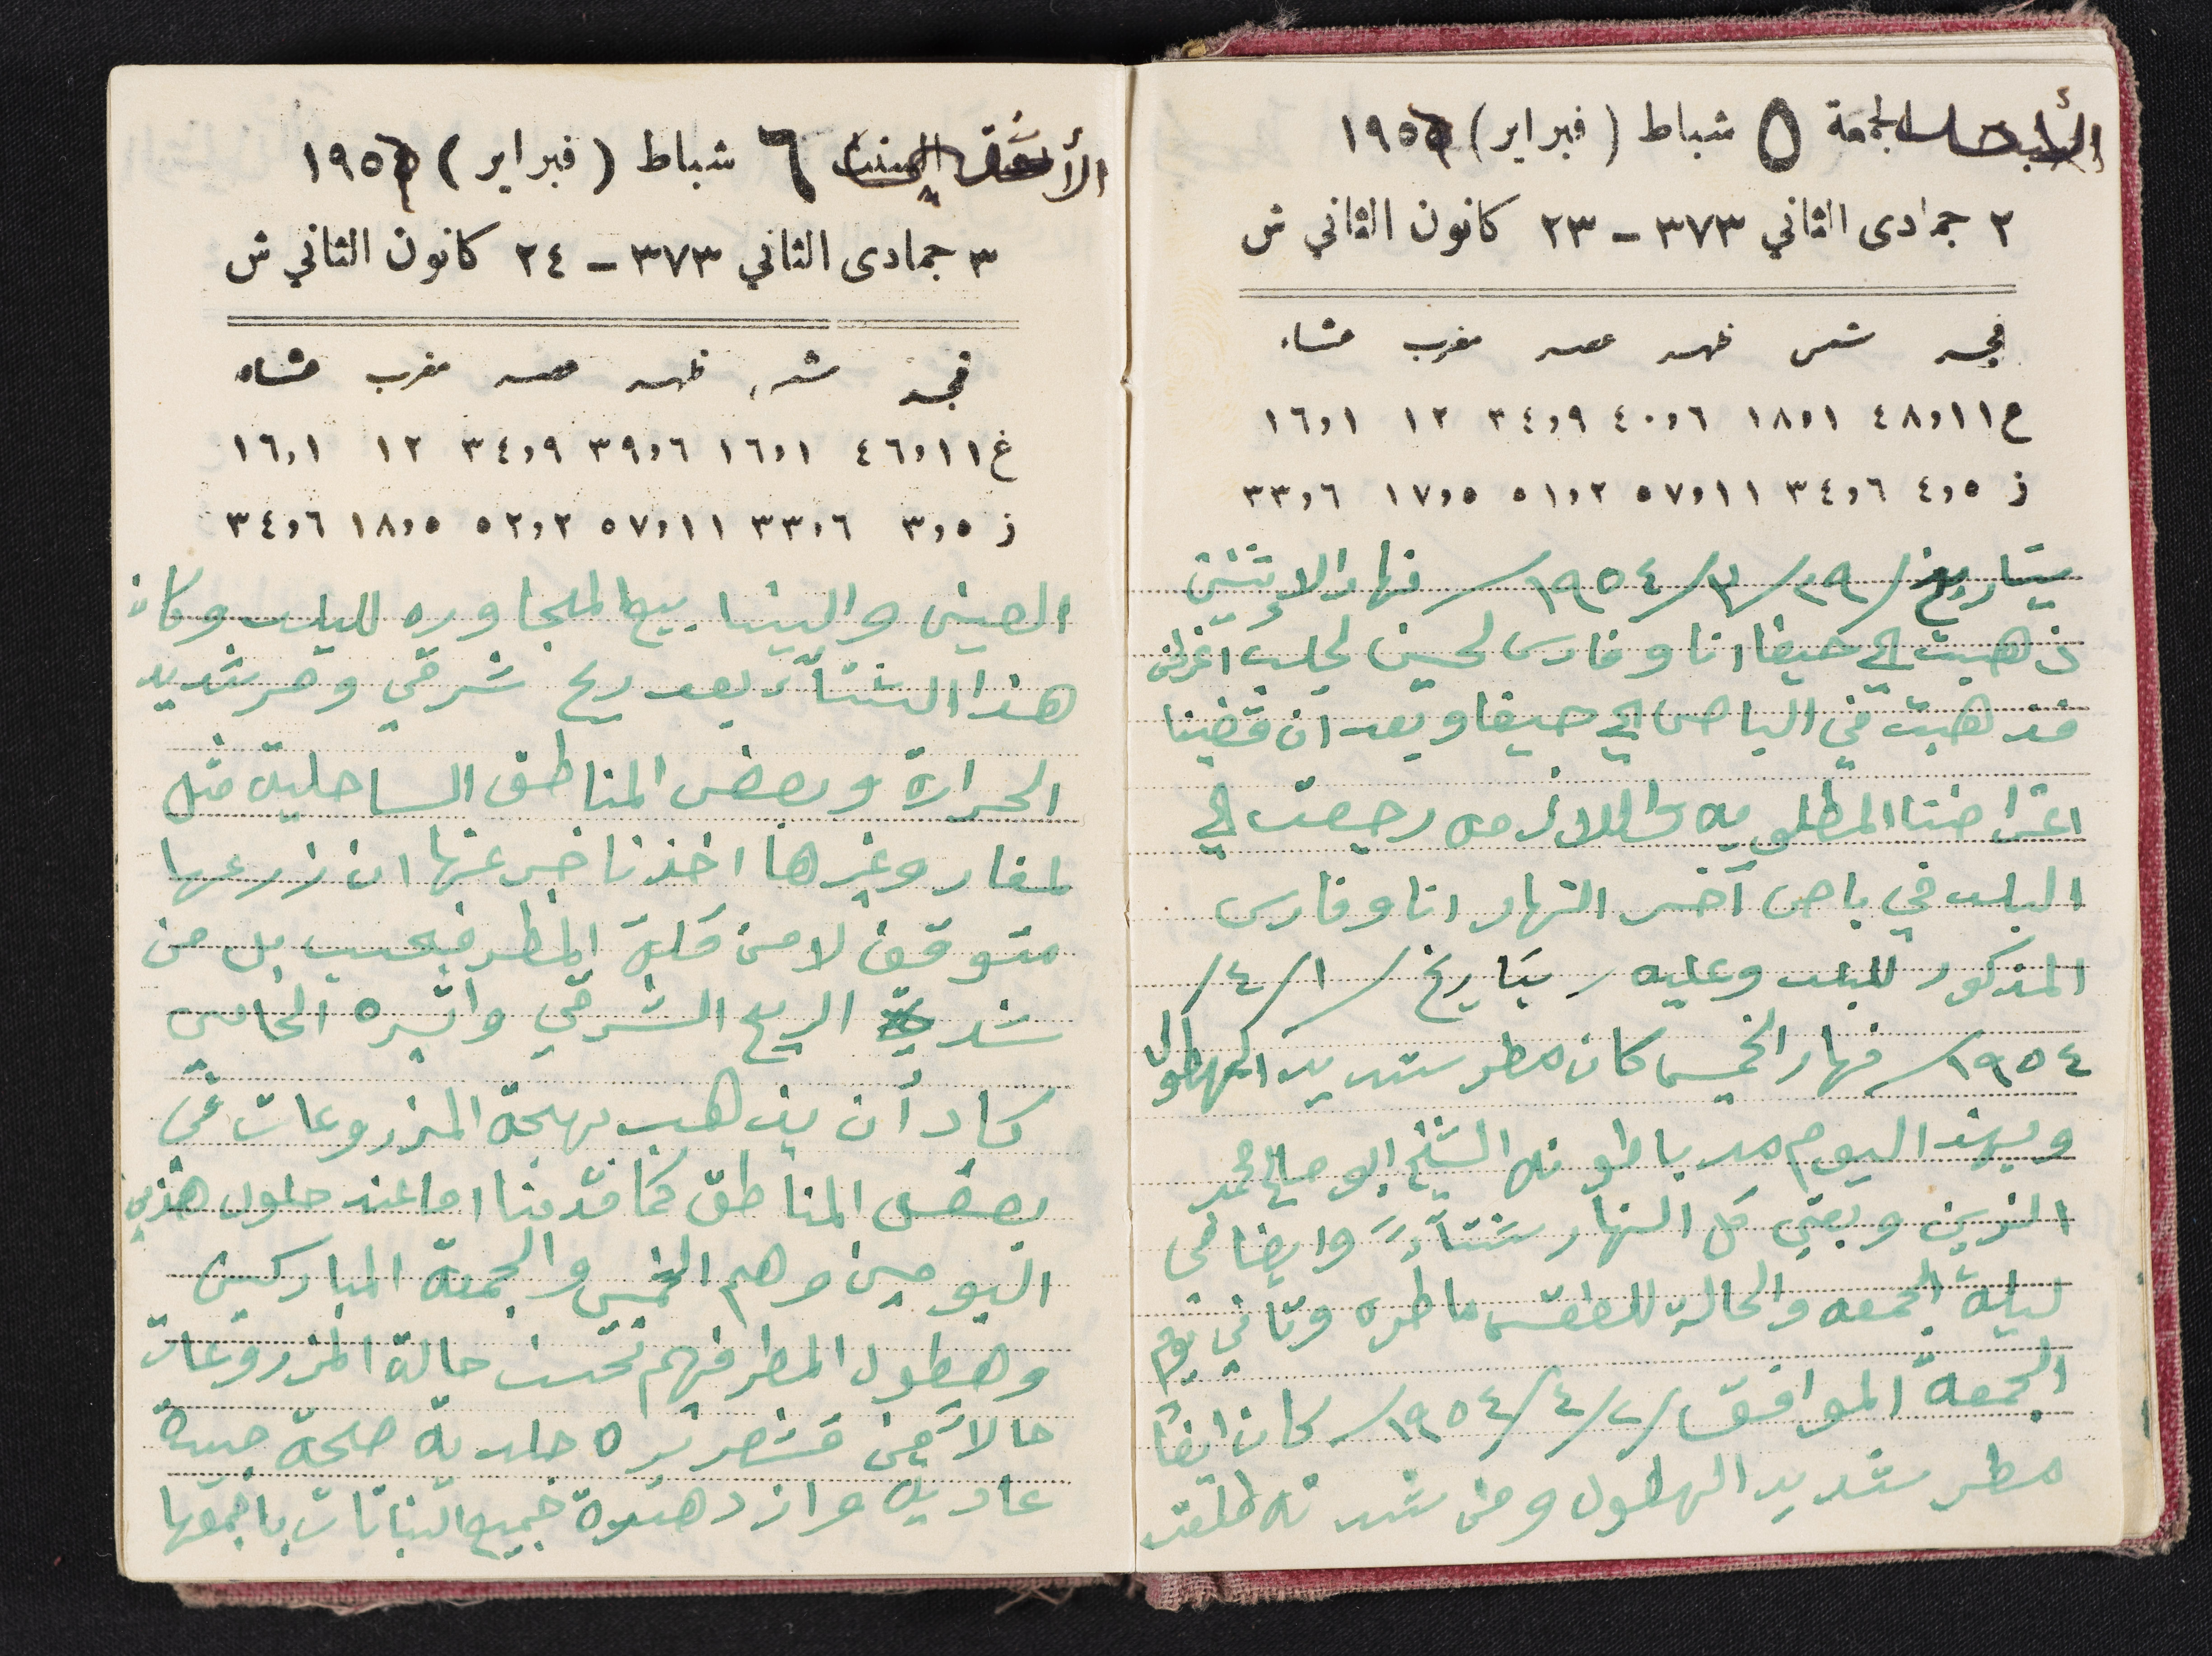 الجمعة ٥ شباط (فبراير) ١٩٥
٢ جمادى الثاني ٣٧٣ - ٢٣ كانون الثاني ش
فجر شمس ظهر عصر مغرب عشاء
غ ٤٨،١١ ١٨،١ ٤٠،٦ ٣٤،٩ ١٢ ١٦،١
ز ٤،٥ ٣٤،٦ ٥٧،١١ ٥١،٢ ١٧،٥ ٣٣،٦
بتاريخ /٢٩/٣/١٩٥٤/ نهار الإثنين
ذهبت الي حيفا انا وفارس لحسين لجلب اغراض
فذهبت في الباص الي حيفا وبعد ان قضينا
اغراضنا المطلوبه واللازمه رجعت الي
البلد في باص آخر النهار انا وفارس
المذكور للبلد وعليه / بتاريخ /١/٤/
١٩٥٤/ نهار الخميس كان مطر شديد الهطول
وبهذا اليوم صد باطونه الشيخ ابو صالح محمد
الزين وبقي كل النهار شتآءً وايضا في
ليلة الجمعه والحالة للطقس ماطره وثاني يوم
الجمعة الموافق /٢/٤/١٩٥٤/ كان ايضاً
مطر شديد الهطول ومن شدته طلعت
السبت ٦ شباط (فبراير) ١٩٥
٣ جمادى الثاني ٣٧٣ - ٢٤ كانون الثاني ش
فجر شمس ظهر عصر مغرب عشاء
غ ٤٦،١١ ١٦،١ ٣٩،٦ ٣٤،٩ ١٢ ١٦،١
ز ٣،٥ ٣٣،٦ ٥٧،١١ ٥٢،٢ ١٨،٥ ٣٤،٦
العين والينابيع المجاوره للبلد وكان
هذا الشتآء بعد ريح شرقي وحر شديد
الحرارة وبعض المناطق الساحلية مثل
لمغار وغيرها اخذنا خبر عنها ان زرعها
متوقف لا من قلة المطر فحسب بل من
شدة الريح الشرقي واثره الخاص
كاد أن يذهب بهجة المزروعات في
بعض المناطق كما قدمنا اما عند حلول هذين
اليومين وهم الخميس والجمعة المباركين
وهطول المطر فيهم تحسنت حالة المزروعات
حالاً من جلدية صلحة جيدة
عاديه وازدهرة جميع النباتات باجمعها